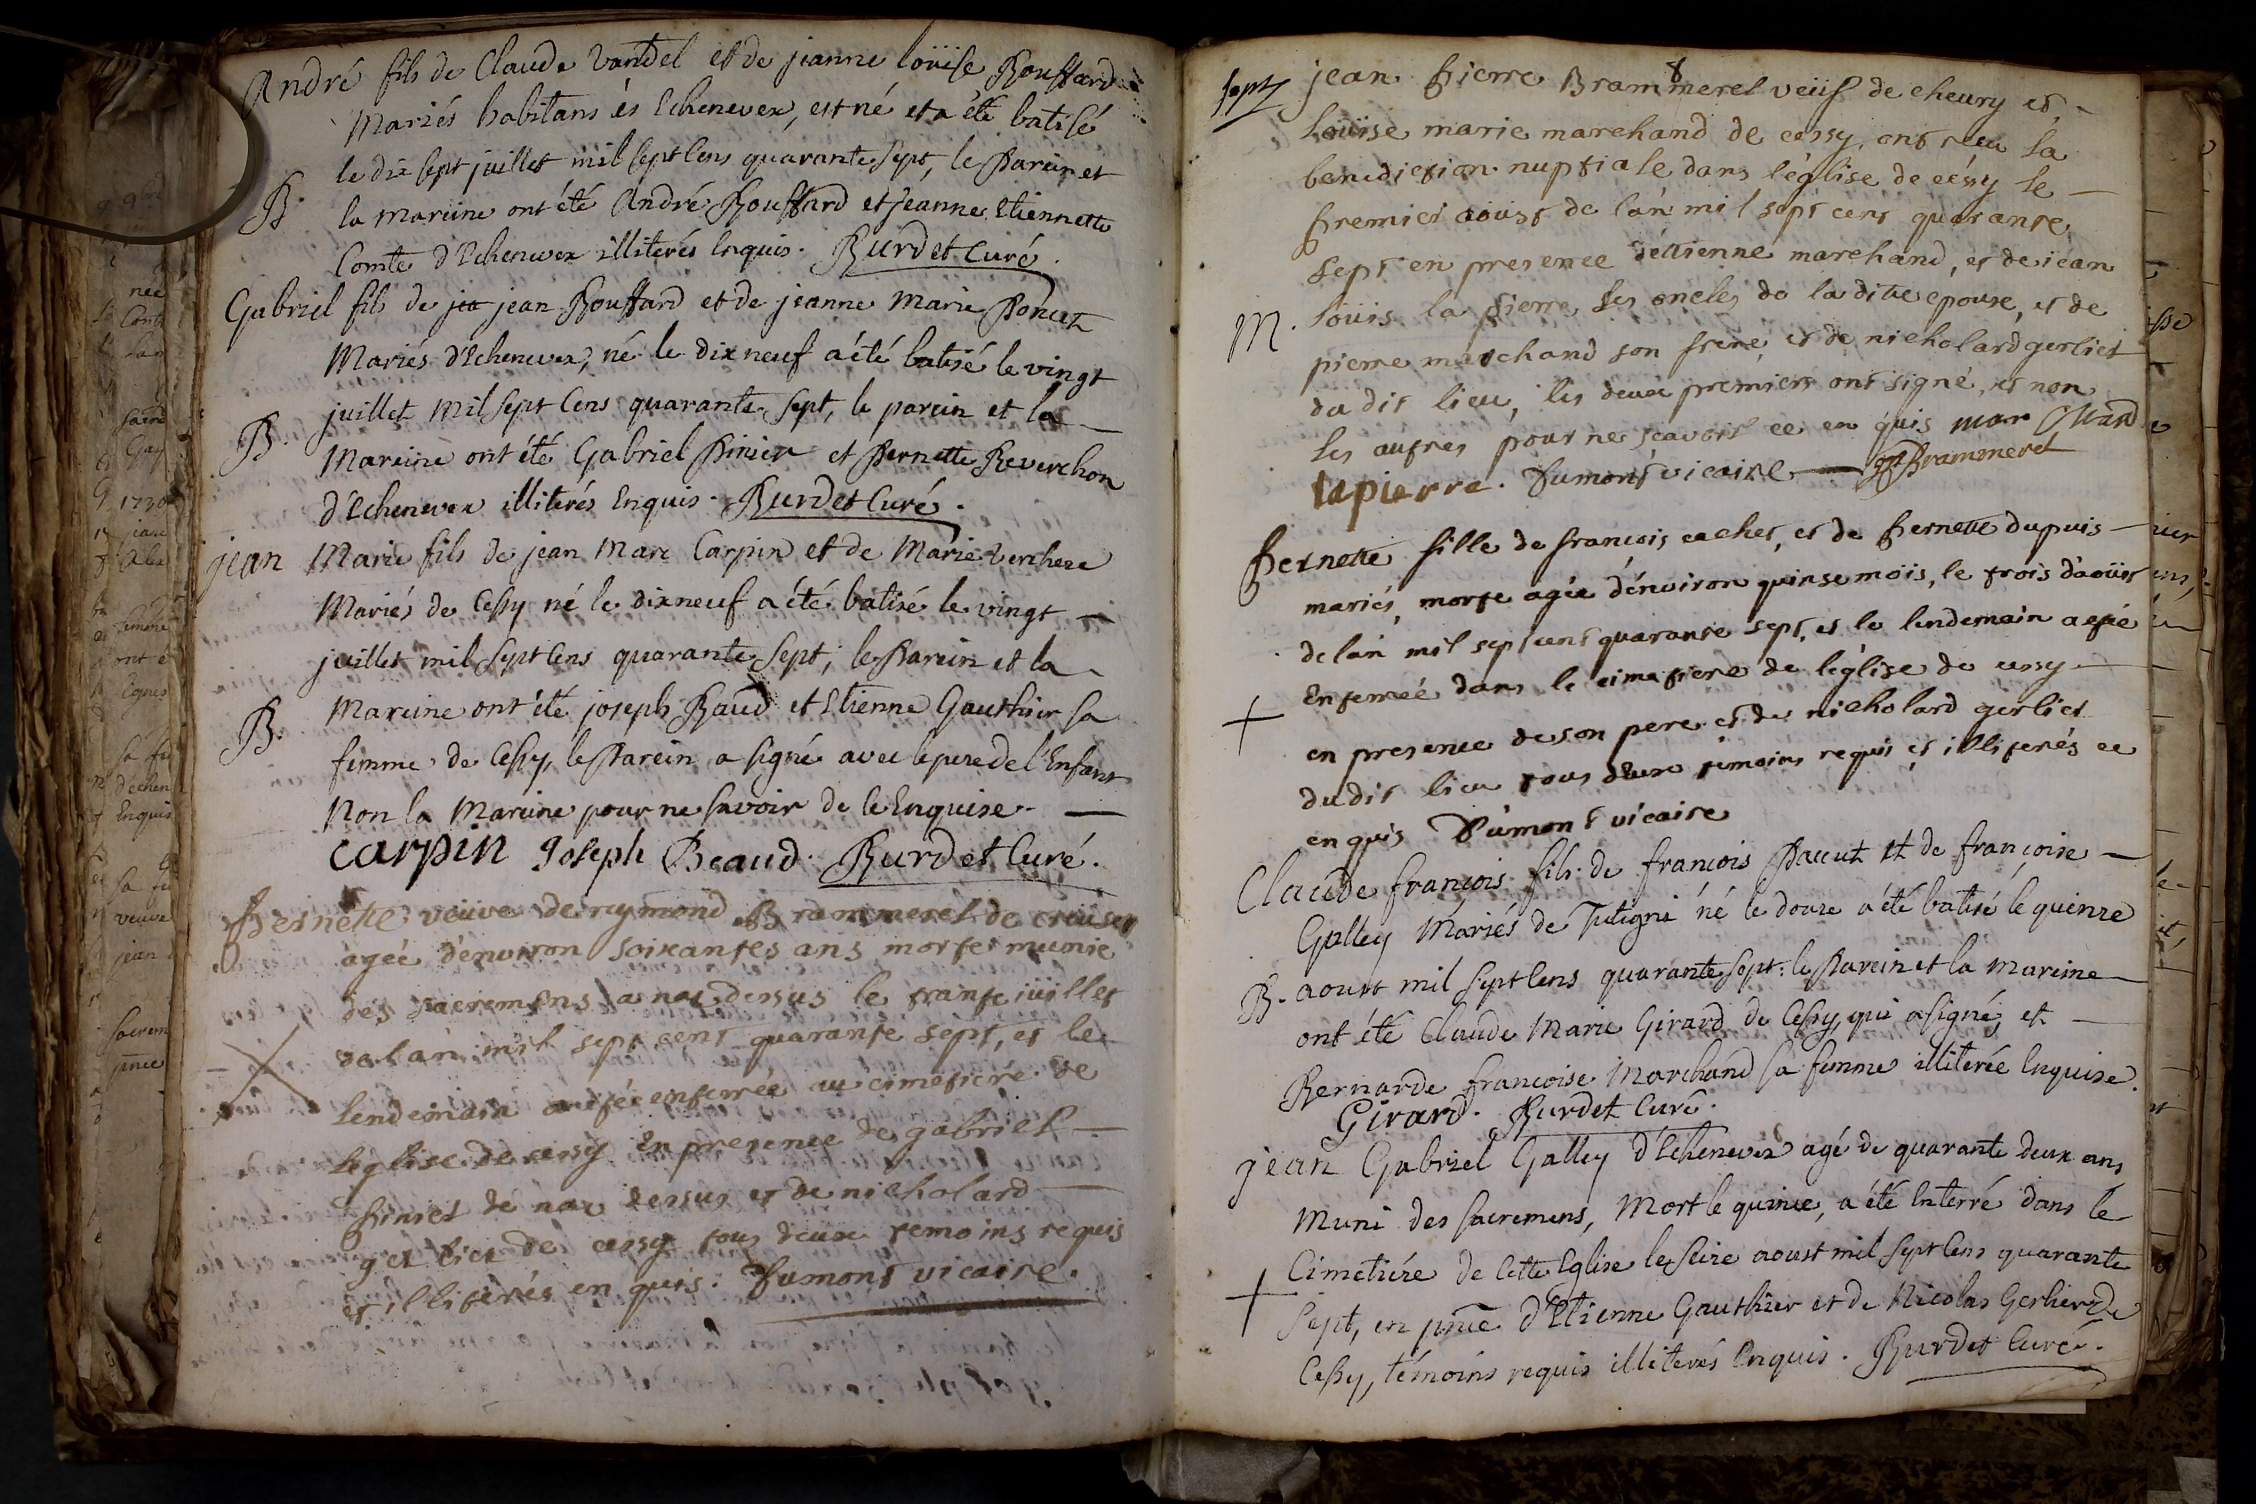 André fils de Claude Vandel et de jeanne loüise Bouffard
Mariés habitans ès Echenevex, est né et a été batisé
le dix sept juillet mil sept Cens quarante sept, le Parein et
B.
la mareine ont été André Bouffard et Jeanne Etiennette
Comte d'Echenevex illiterés Enquis. Burdet Curé.
Gabriel fils de jea jean Bouffard et de jeanne Marie Poncet
Mariés d'Echenevex, né le dix neuf a été batisé le vingt
juillet Mil sept Cens quarante sept, le parein et la
B.
Mareine ont été Gabriel Pinier et Pernette Reverchon
d'Echenevex illiterés Enquis. Burdet Curé.
jean Marie fils de jean Marc Carpin et de Marie Verchere
Mariés de Cessy né le dix neuf a été batisé le vingt
juillet mil sept Cens quarante sept, le Parein et la
B.
Mareine ont été joseph Baud et Etienne Gauthier sa
femme de Cessy, le Parein a signé avec le pere de l'Enfant
Non la Mareine pour ne savoir de le Enquise.
Carpin Joseph Beaud. Burdet Curé.
Pernette veuve de reymond Brammerel de
agée d'environ soixantes ans morte munie
des sacremens a nax dessus le trante iüillet
de l'an mil sept cent quarante sept, et le
lendemain a etée enterrée au cimetiere de
leglise de cessy en presence de gabriel
piniet de nax dessus et de nicholard
gerliet de cessy tous deux temoins requis
et illiterés en quis. Dumont vicaire.
8
sept jean pierre Brammerel veüf de cheury et
Loüise marie marchand de cessy, ont receu la
benediction nuptiale dans l'église de céssy le
premier aoust de l'an mil sept cent quarante
sept en presence d'éttienne marchand, et de iean
M.
loüis la pierre, ses oncles de la ditte epouse, et de
pierre marchand son frere, et de nicholard gerliet
du dit lieu, les deux premiers ont signé, et non
les autres pour ne sçavoir ce en quis marchand
lapierre. Dumont vicaire JP Brammerel
Pernette fille de francois cachet, et de pernette dupuis
mariés, morte agée d'environ quinse mois, le trois d'aoüst
de l'an mil sept cent quarante sept, et le lendemain a etée
Enterreé dans le cimetiere de l'église de cessy
en presence de son pere et de nicholard gerliet
dudit lieu tous deux témoins requis et illiterés ce
en quis Dumont vicaire
Claude francois fils de francois Paccut et de francoise
Galley Mariés de Tutigni né le douze a été batisé le quinze
B.
aoust mil sept Cens quarante sept: le Parein et la mareine
ont été Claude Marie Girard de Cessy, qui a signé, et
Bernarde francoise Marchand sa femme illiterée Enquise.
Girard. Burdet Curé.
jean Gabriel Galley d'Echenevex agé de quarante deux ans
Muni des sacremens, Mort le quinze, a été Enterré dans le
Cimetiére de Cette Eglise le seize aoust mil sept Cens quarante
sept, en pnce d'Etienne Gauthier et de Nicolas Gerlier de
Cessy, témoins requis illiterés Enquis. Burdet Curé.